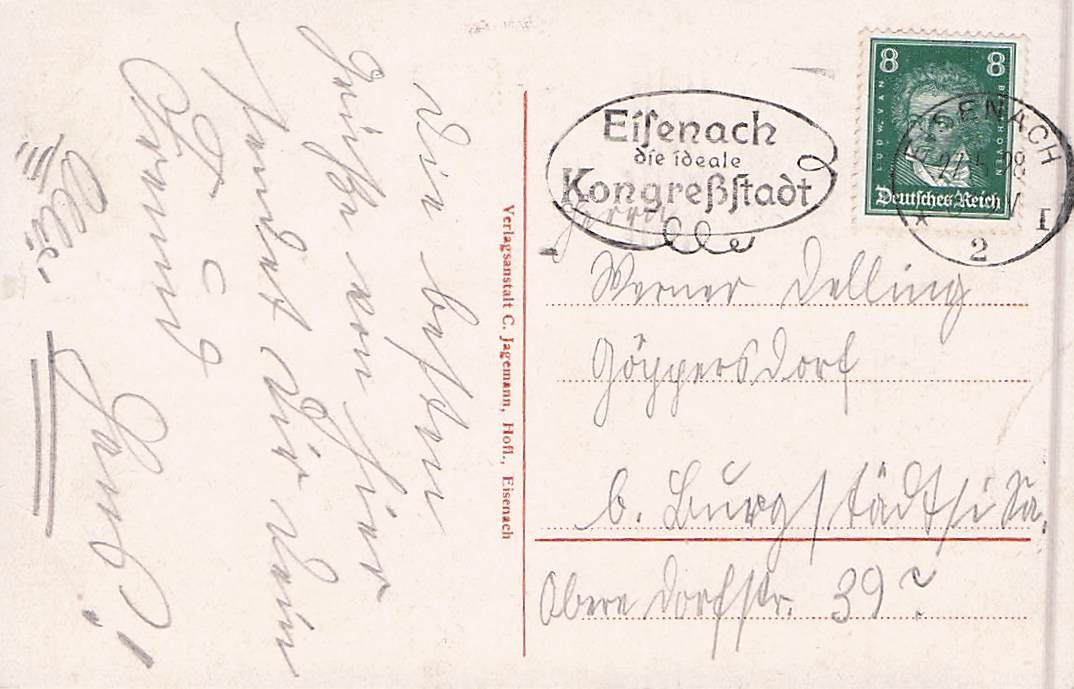 Die besten
Grüße von hier
sendet Dir dein
Verlagsanstalt C. Jagemann, Hofl., Eisenach
Eiſenach
die ideale
Kongreßſtadt
8 8
LUDW. VAN
BEETHOVEN
Deutſches Reich
EISENACH
I
2
Herrn
Werner Delling
Göppersdorf
b. Burgſtädt i/Sa.
Obere Dorfſtr. 39?